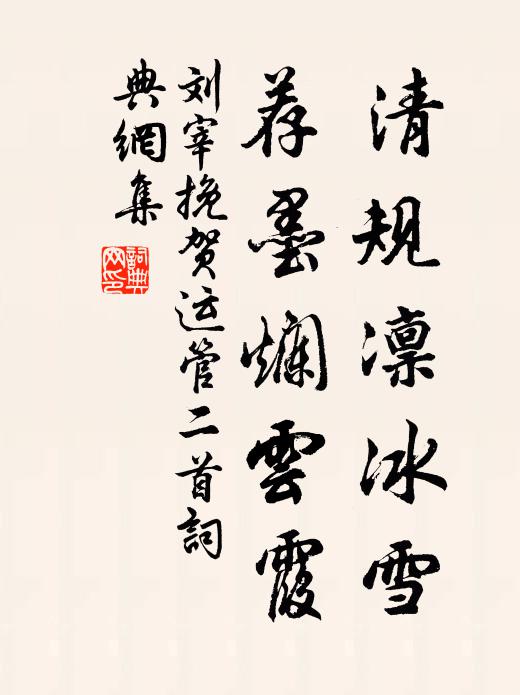 清規凛冰雪
荐墨爛雲霞
刘宰挽贺运管二首詞
典網集
詞典